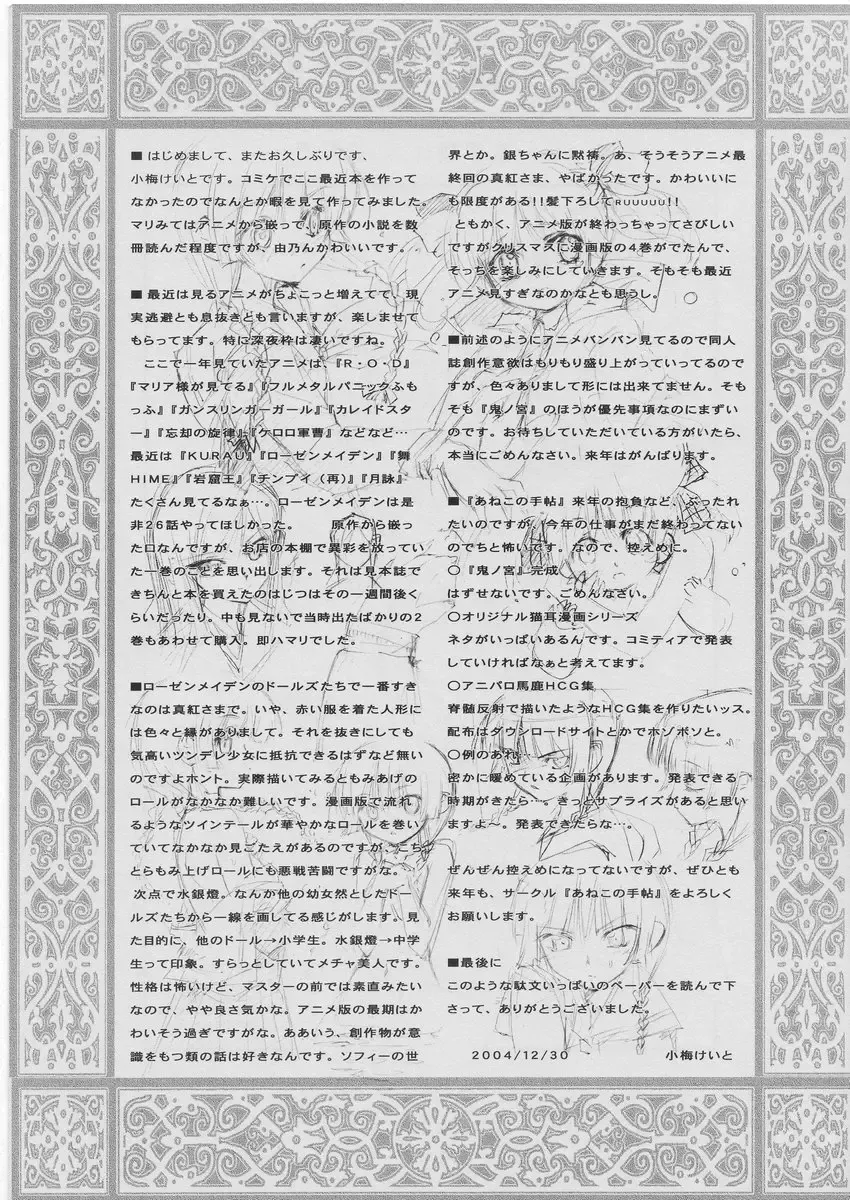 ■はじめまして、またお久しぶりです、
小梅けいとです。コミケでここ最近本を作って
なかったのでなんとか暇を見て作ってみました。
マリみてはアニメから嵌って、原作の小説を数
冊読んだ程度ですが、由乃んかわいいです。
■最近は見るアニメがちょこっと増えてて、現
実逃避とも息抜きとも言いますが、楽しませて
もらってます。特に深夜枠は凄いですね。
ここで一年見ていたアニメは、『R・O・D』
『マリア様が見てる』『フルメタルパニックふも
っふ』『ガンスリンガーガール』『カレイドスタ
ー』『忘却の旋律』『ケロロ軍曹』などなど…
最近は『KURAU』『ローゼンメイデン』『舞
HIME』『岩窟王』『チンプイ（再）』『月詠』
たくさん見てるなぁ…。ローゼンメイデンは是
非26話やってほしかった。　原作から嵌っ
た口なんですが、お店の本棚で異彩を放ってい
た一巻のことを思い出します。それは見本誌で
きちんと本を買えたのはじつはその一週間後く
らいだったり。中も見ないで当時出たばかりの2
巻もあわせて購入。即ハマリでした。
■ローゼンメイデンのドールズたちで一番すき
なのは真紅さまで。いや、赤い服を着た人形に
は色々と縁がありまして。それを抜きにしても
気高いツンデレ少女に抵抗できるはずなど無い
のですよホント。実際描いてみるともみあげの
ロールがなかなか難しいです。漫画版で流れ
るようなツインテールが華やかなロールを巻い
ていてなかなか見ごたえがあるのですが、こち
とらもみ上げロールにも悪戦苦闘ですがな。
次点で水銀燈。なんか他の幼女然としたドー
ルズたちから一線を画してる感じがします。見
た目的に、他のドール→小学生。水銀燈→中学
生って印象。すらっとしていてメチャ美人です。
性格は怖いけど、マスターの前では素直みたい
なので、やや良さ気かな。アニメ版の最期はか
わいそう過ぎですがな。ああいう、創作物が意
識をもつ類の話は好きなんです。ソフィーの世
界とか。銀ちゃんに黙祷。あ、そうそうアニメ最
終回の真紅さま、やばかったです。かわいいに
も限度がある!!髪下ろしてRUUUUU!!
ともかく、アニメ版が終わっちゃってさびしい
ですがクリスマスに漫画版の4巻がでたんで、
そっちを楽しみにしていきます。そもそも最近
アニメ見すぎなのかなとも思うし。
■前述のようにアニメバンバン見てるので同人
誌創作意欲はもりもり盛り上がっていってるので
すが、色々ありまして形には出来てません。そも
そも『鬼ノ宮』のほうが優先事項なのにまずい
のです。お待ちしていただいている方がいたら、
本当にごめんなさい。来年はがんばります。
■『あねこの手帖』来年の抱負など、ぶったれ
たいのですが、今年の仕事がまだ終わってない
のでちと怖いです。なので、控えめに。
○『鬼ノ宮』完成
はずせないです。ごめんなさい。
○オリジナル猫耳漫画シリーズ
ネタがいっぱいあるんです。コミティアで発表
していければなぁと考えてます。
○アニパロ馬鹿HCG集
脊髄反射で描いたようなHCG集を作りたいッス。
配布はダウンロードサイトとかでホソボソと。
○例のあれ…
密かに暖めている企画があります。発表できる
時期がきたら…。きっとサプライズがあると思い
ますよ～。発表できたらな…。
ぜんぜん控えめになってないですが、ぜひとも
来年も、サークル『あねこの手帖』をよろしく
お願いします。
■最後に
このような駄文いっぱいのペーパーを読んで下
さって、ありがとうございました。
2004/12/30　小梅けいと